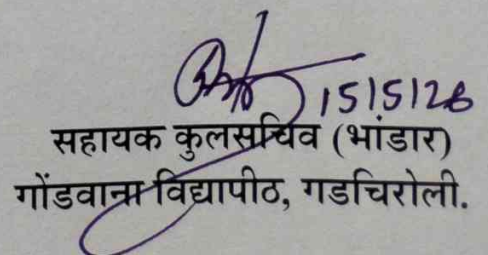 15/5/26
सहायक कुलसचिव (भांडार)
गोंडवाना विद्यापीठ, गडचिरोली.